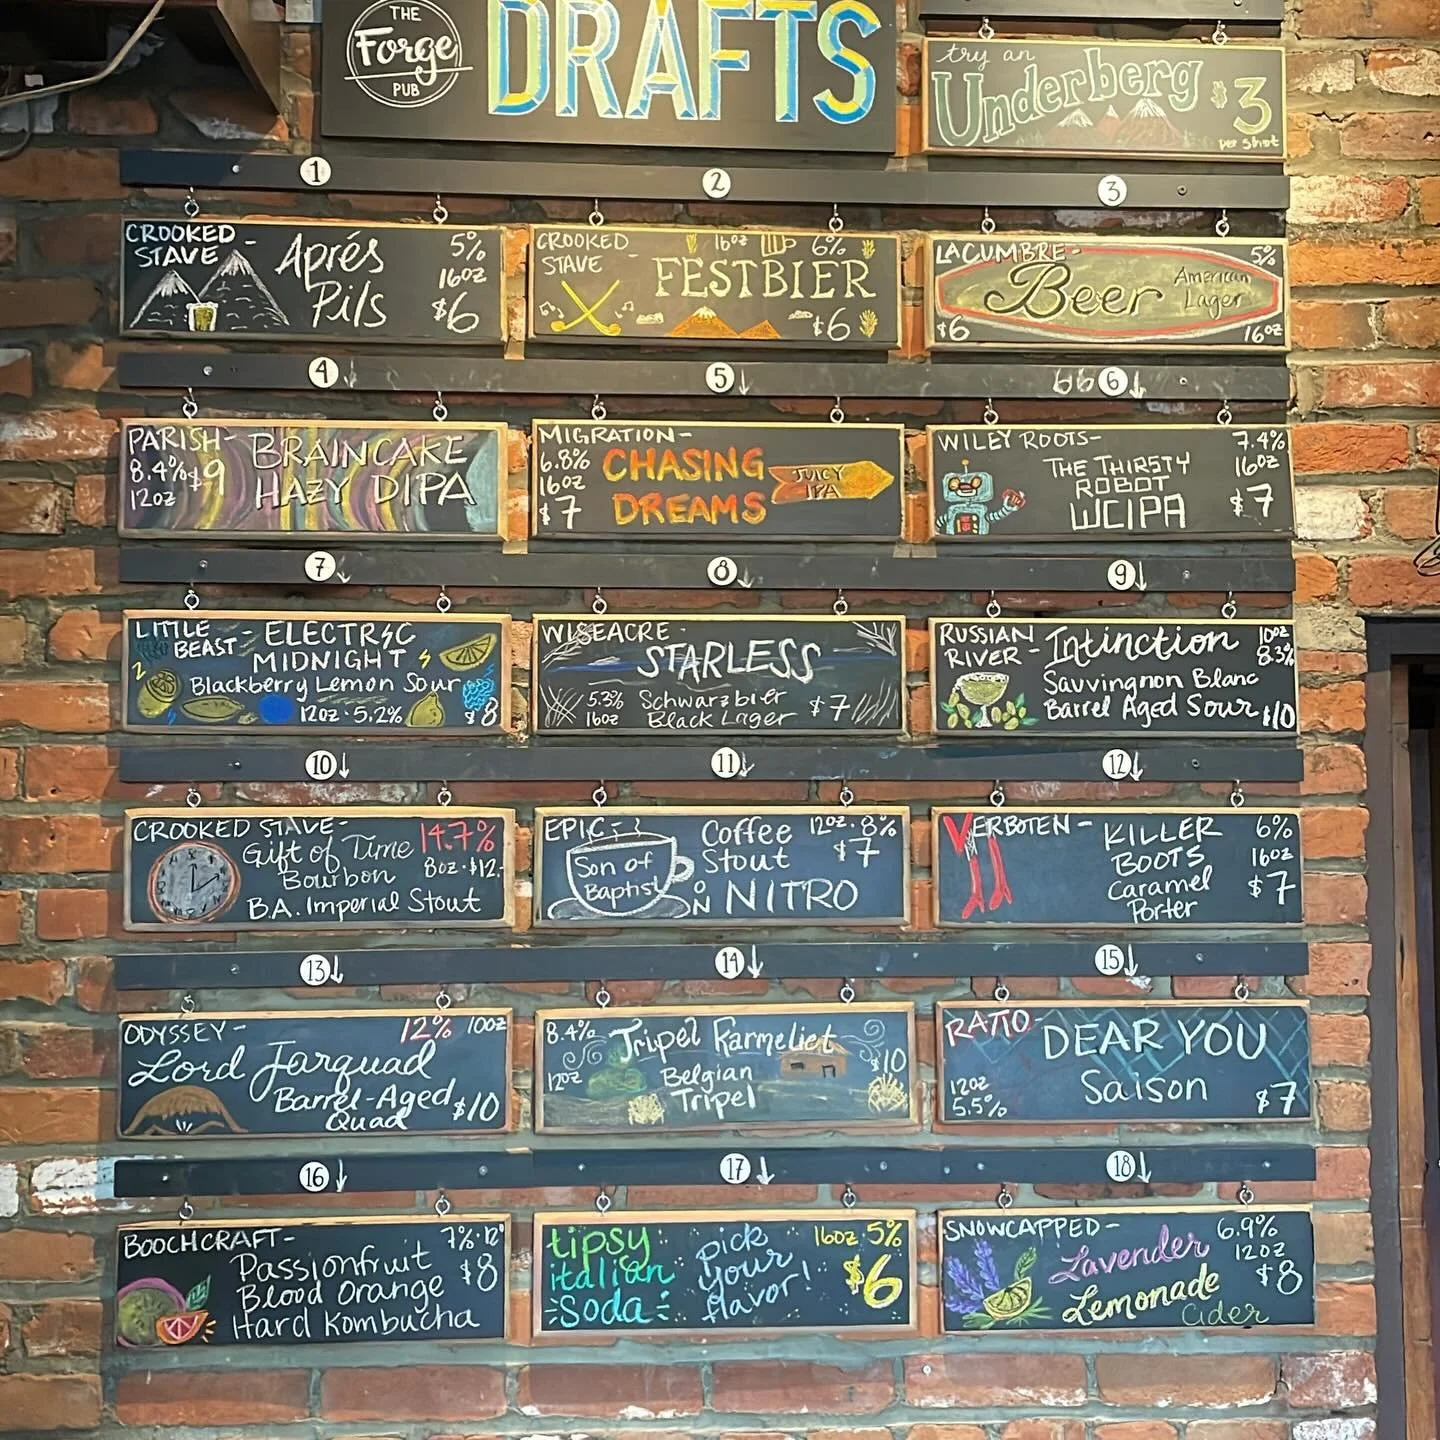 THE
Forge
PUB
DRAFTS
try an
Underberg
$3
per shot
1
2
3
CROOKED
STAVE -
Aprés
Pils
5%
16oz
$6
CROOKED
STAVE
16oz 6%
FESTBIER
$6
LA CUMBRE-
5%
Beer
American
Lager
$6
16oz
4
5
6
PARISH-
8.4% $9
12oz
BRAINCAKE
HAZY DIPA
MIGRATION-
6.8%
16oz
$7
CHASING
DREAMS
JUICY
IPA
WILEY ROOTS-
THE THIRSTY
ROBOT
WCIPA
7.4%
16oz
$7
7
8
9
LITTLE
BEAST-
ELECTRIC
MIDNIGHT
Blackberry Lemon Sour
12oz · 5.2%
$8
WISEACRE-
STARLESS
5.3%
16oz
Schwarzbier
Black Lager
$7
RUSSIAN
RIVER-
Intinction
10oz
8.3%
Sauvingnon Blanc
Barrel Aged Sour
$10
10
11
12
CROOKED STAVE-
14.7%
Gift of Time
8oz · $12.-
Bourbon
B.A. Imperial Stout
EPIC-
Son of
Baptist
Coffee
Stout
12oz · 8%
$7
ON NITRO
VERBOTEN -
KILLER
BOOTS
Caramel
Porter
6%
16oz
$7
13
14
15
ODYSSEY-
12% 10oz
Lord Farquad
Barrel-Aged
Quad
$10
8.4%
12oz
Tripel Karmeliet
Belgian
Tripel
$10
RATIO-
DEAR YOU
Saison
12oz
5.5%
$7
16
17
18
BOOCHCRAFT-
7% · 12
Passionfruit
Blood Orange
Hard Kombucha
$8
tipsy
italian
Soda
pick
your
flavor!
16oz 5%
$6
SNOWCAPPED-
6.9%
12oz
$8
Lavender
Lemonade
Cider